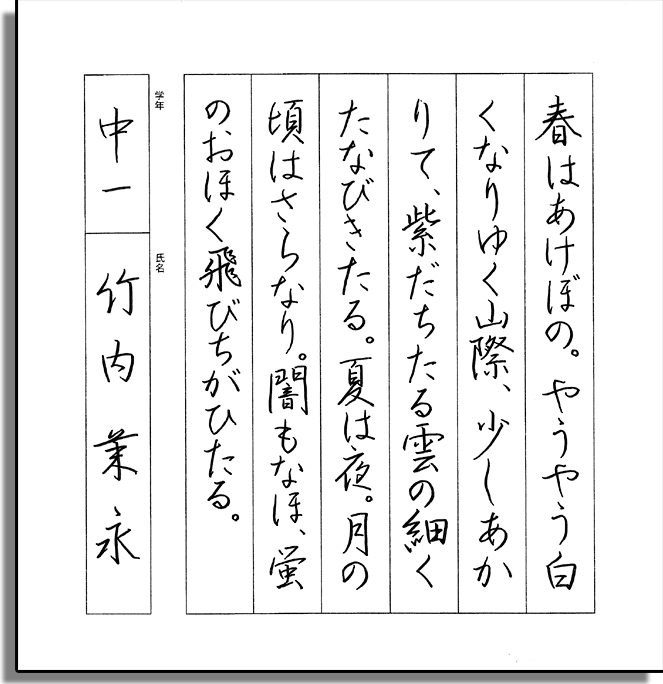 春はあけぼの。やうやう白
くなりゆく山際、少しあか
りて、紫だちたる雲の細く
たなびきたる。夏は夜。月の
頃はさらなり。闇もなほ、蛍
のおほく飛びちがひたる。
学年
中一
氏名
竹内茉永